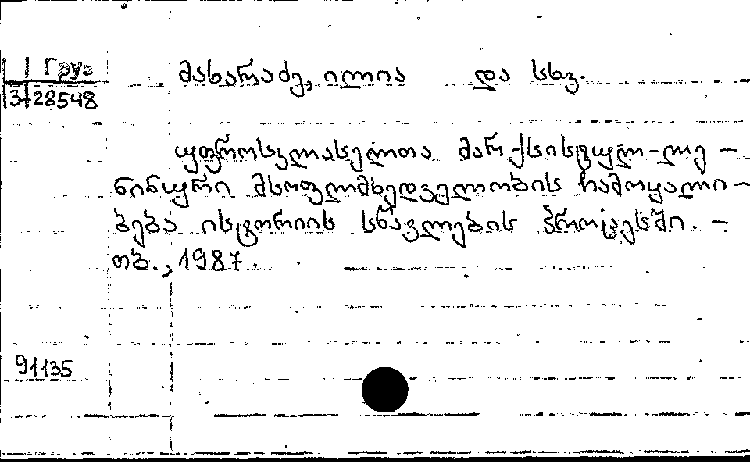 Груз
3 28548
მახარაძე, ილია და სხვ.
უფროსკლასელთა მარქსისტულ-ლე-
ნინური მსოფლმხედველობის ჩამოყალი-
ბება ისტორიის სწავლების პროცესში. -
თბ., 1987.
91135